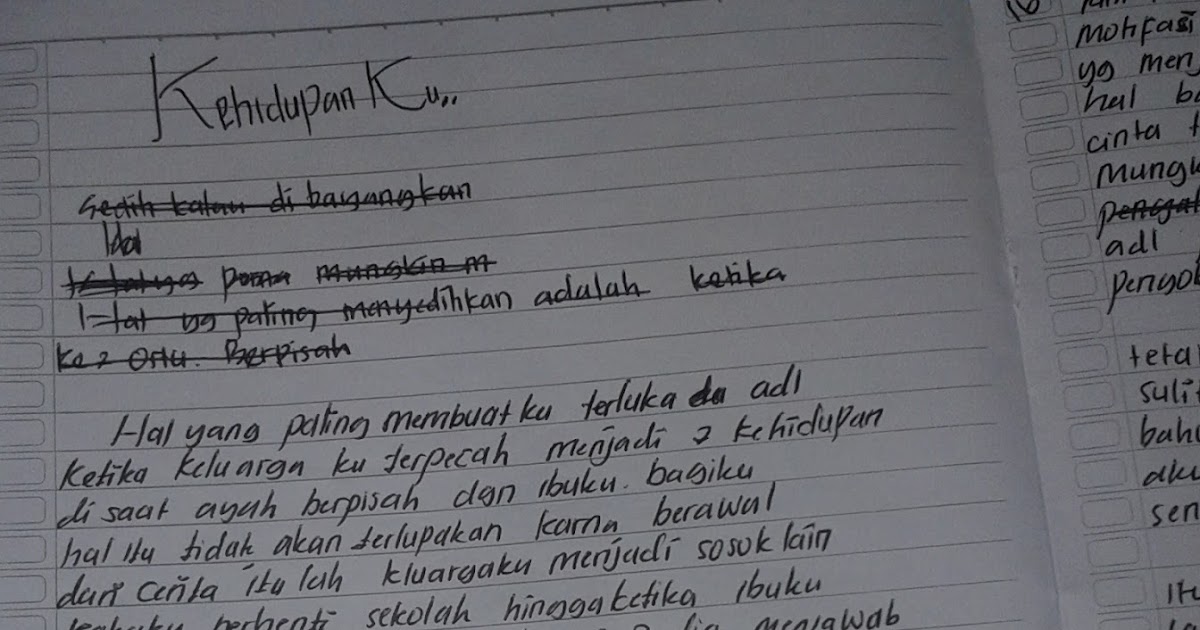 Kehidupan Ku..
Sedih kalau di bayangkan
mungkin m
Hal yg paling menyedihkan adalah ketika
ke 2 Ortu. Berpisah
Hal yang paling membuat ku terluka adl
ketika keluarga ku terpecah menjadi 2 kehidupan
di saat ayah berpisah dgn ibuku. bagiku
hal itu tidak akan terlupakan karna berawal
dari cerita itu lah kluargaku menjadi sosok lain
berhenti sekolah hingga ketika ibuku
menjawab
motifasi
yg men
hal
cinta
adl
bah
aku
sen